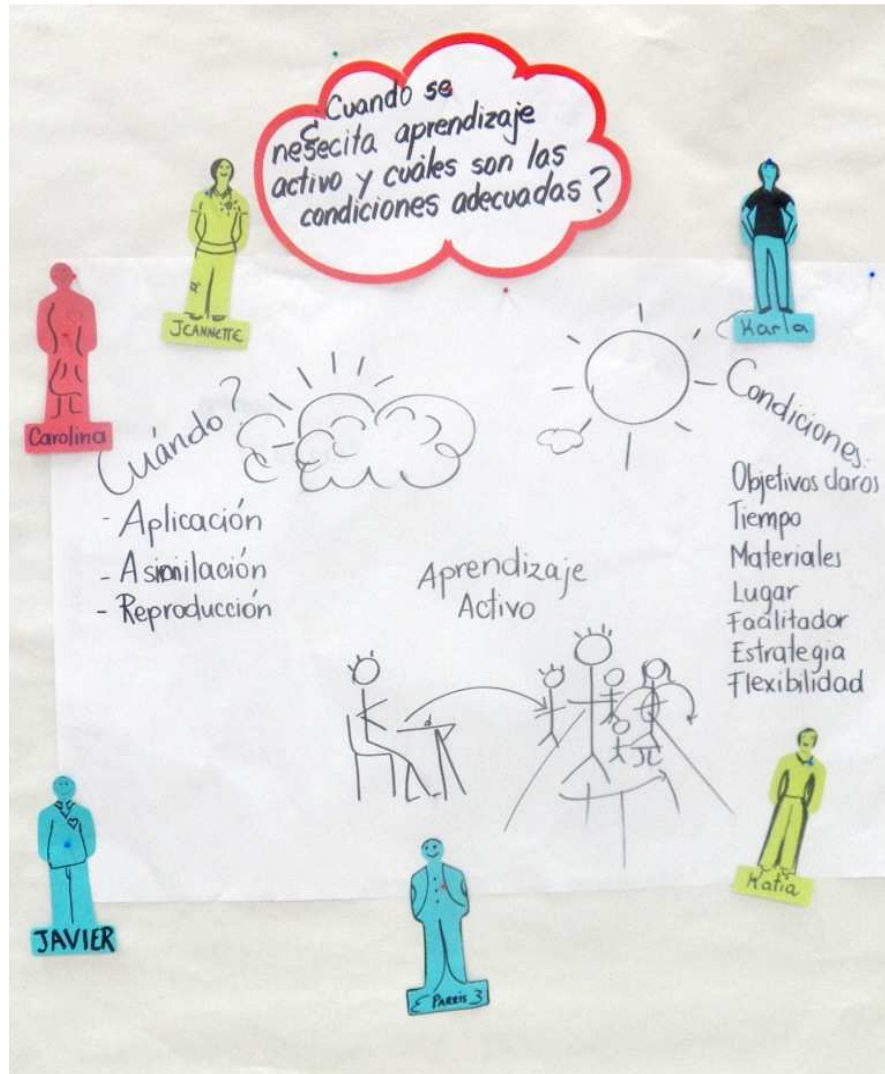 ¿Cuando se
nesecita aprendizaje
activo y cuáles son las
condiciones adecuadas?
JEANNETTE
Karla
Carolina
Cuándo?
- Aplicación
- Asimilación
- Reproducción
Aprendizaje
Activo
Condiciones:
Objetivos claros
Tiempo
Materiales
Lugar
Facilitador
Estrategia
Flexibilidad
Katia
JAVIER
PARRIS